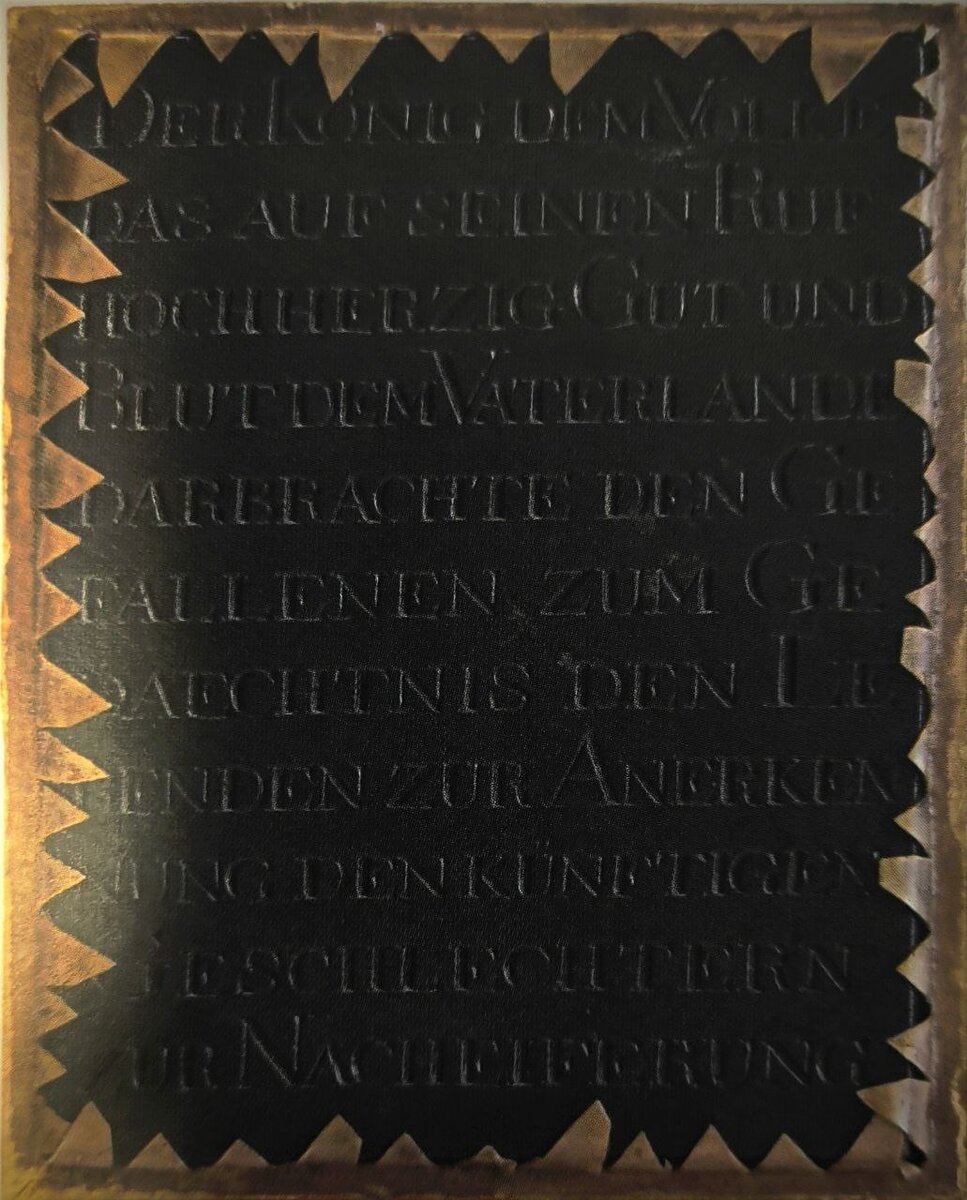 DER KÖNIG DEM VOLKE
DAS AUF SEINEN RUF
HOCHHERZIG GUT UND
BLUT DEM VATERLANDE
DARBRACHTE DEN GE
FALLENEN ZUM GE
DAECHTNIS DEN LE
BENDEN ZUR ANERKEN
NUNG DEN KÜNFTIGEN
GESCHLECHTERN
ZUR NACHEIFERUNG